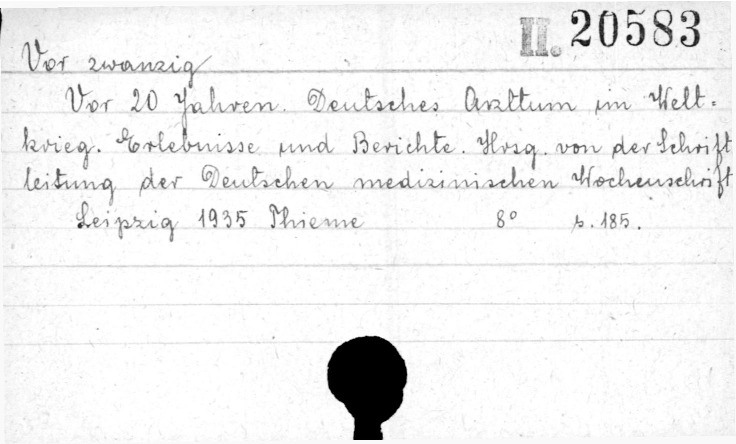 II. 20583
Vor zwanzig
Vor 20 Jahren. Deutsches Arzttum im Welt-
krieg. Erlebnisse und Berichte. Hrsg. von der Schrift
leitung der Deutschen medizinischen Wochenschrift
Leipzig 1935 Thieme 8° s. 185.